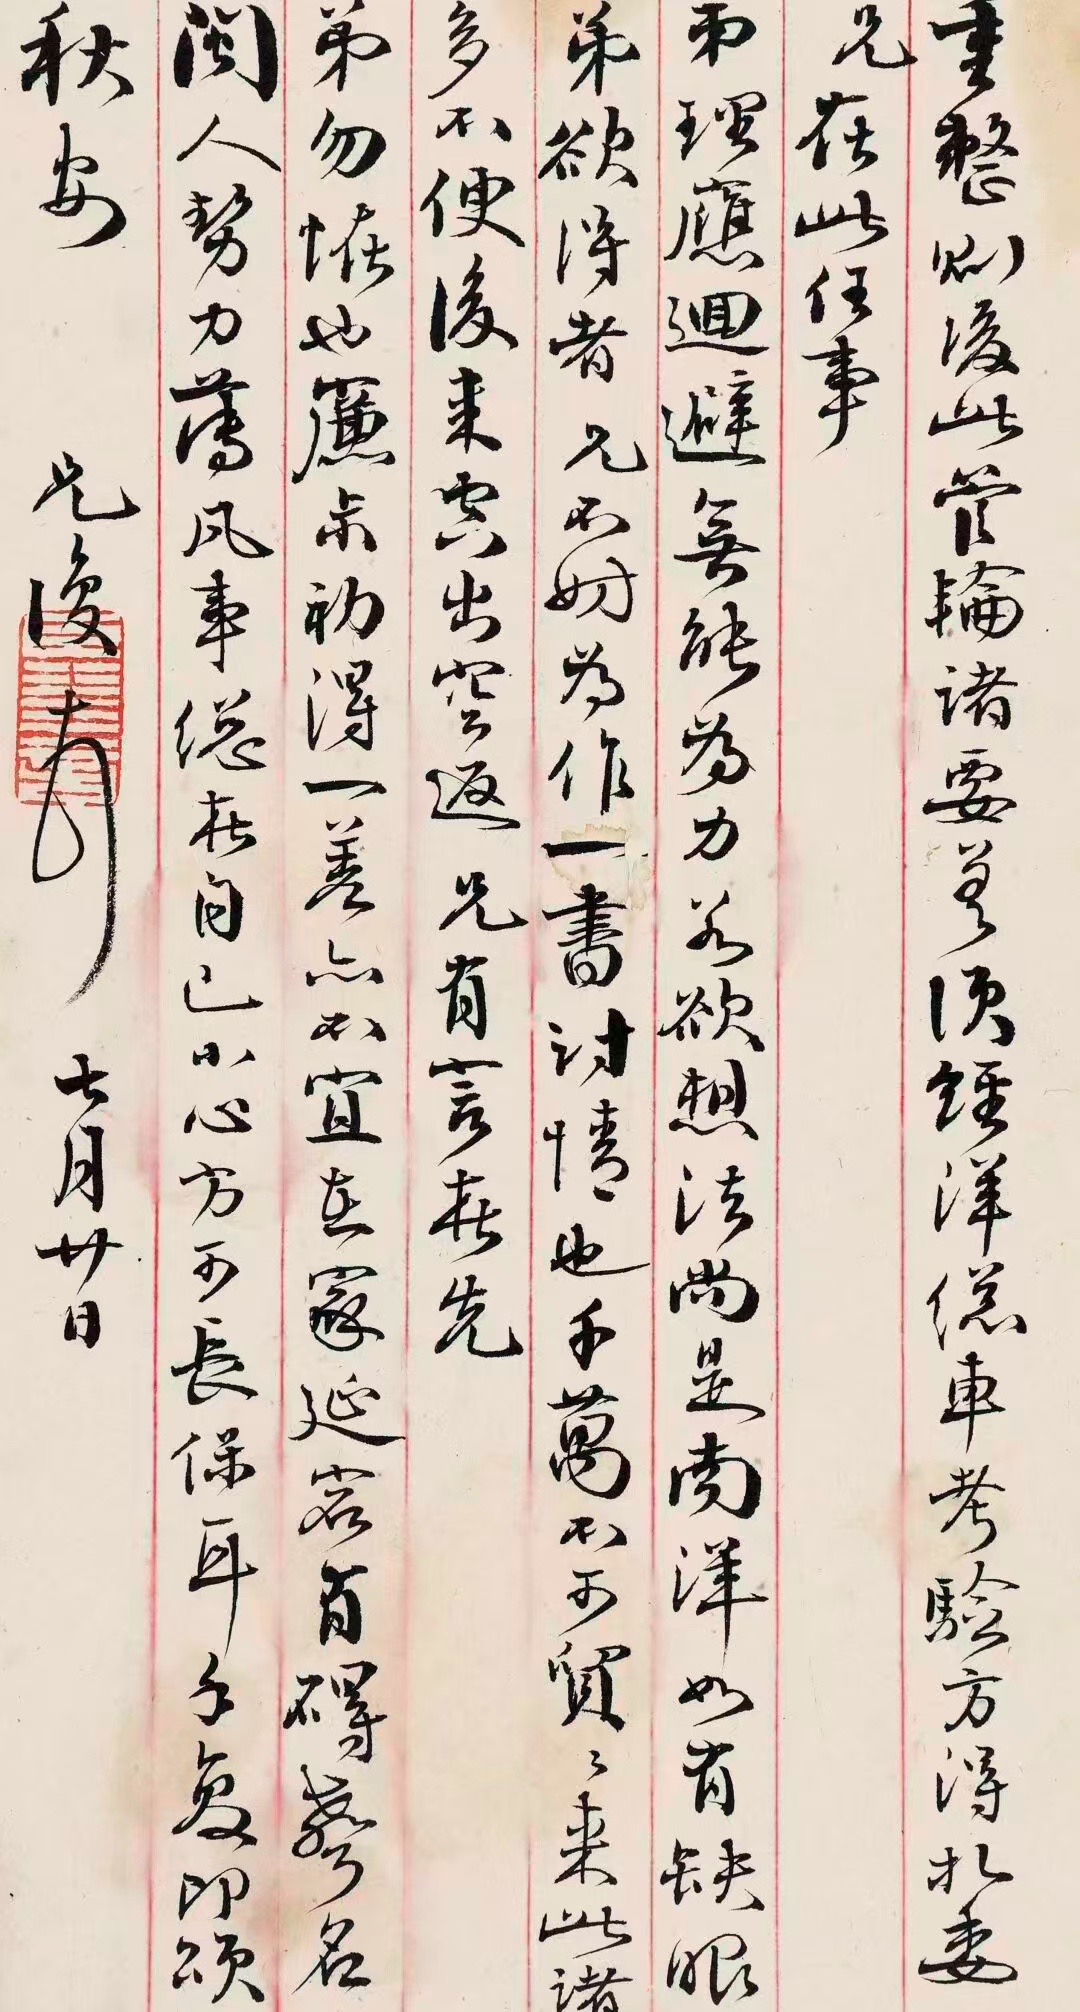 重整則後此管輪諸要差須經洋總車考驗方得札委
兄在此任事
弟理應迴避無能為力若欲想法尚是南洋如有缺眼
弟欲得者兄不妨為作一書討情也千萬不可貿々來此諸
多不便後來突出空返兄有言在先
弟勿怪也簾弟初得一差亦不宜在家延宕有礙聲名
閩人勢力薄凡事總在自己小心方可長保耳手復即頌
秋安 兄復 七月廿日